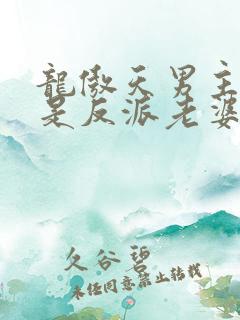 龍傲天男主
是反派老婆
久谷碧
未经同意禁止转载